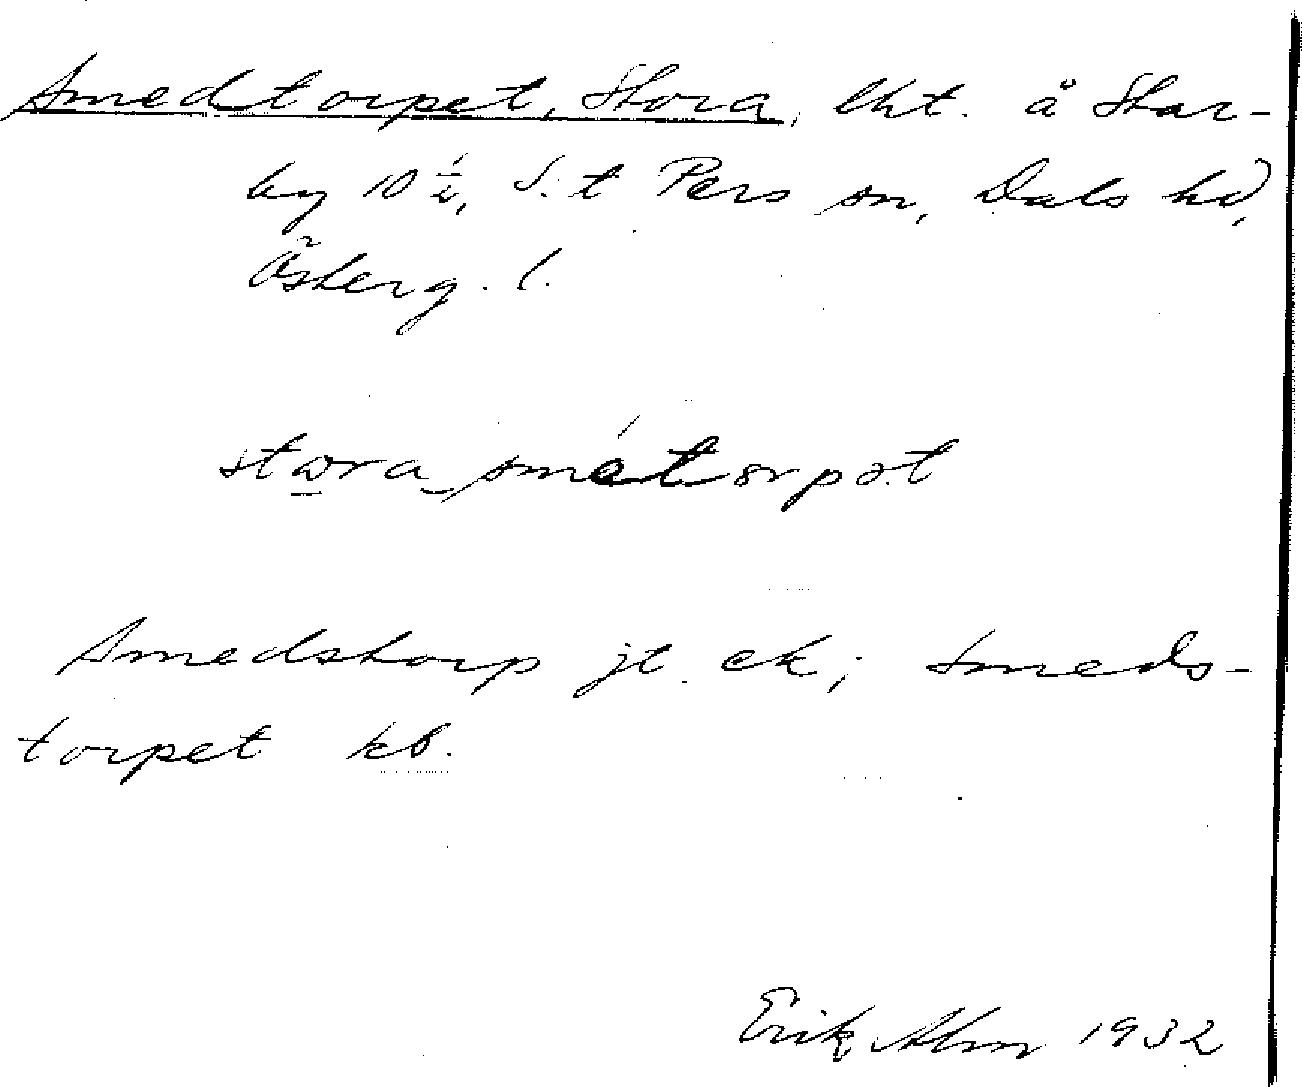 Smedtorpet, Stora, lht. å Star-
by 10 ½, S:t Pers sn, Dals hd,
Österg. l.
stora smétorpət
Smedstorp jt. ek; Smeds-
torpet kb.
Erik Alm 1932